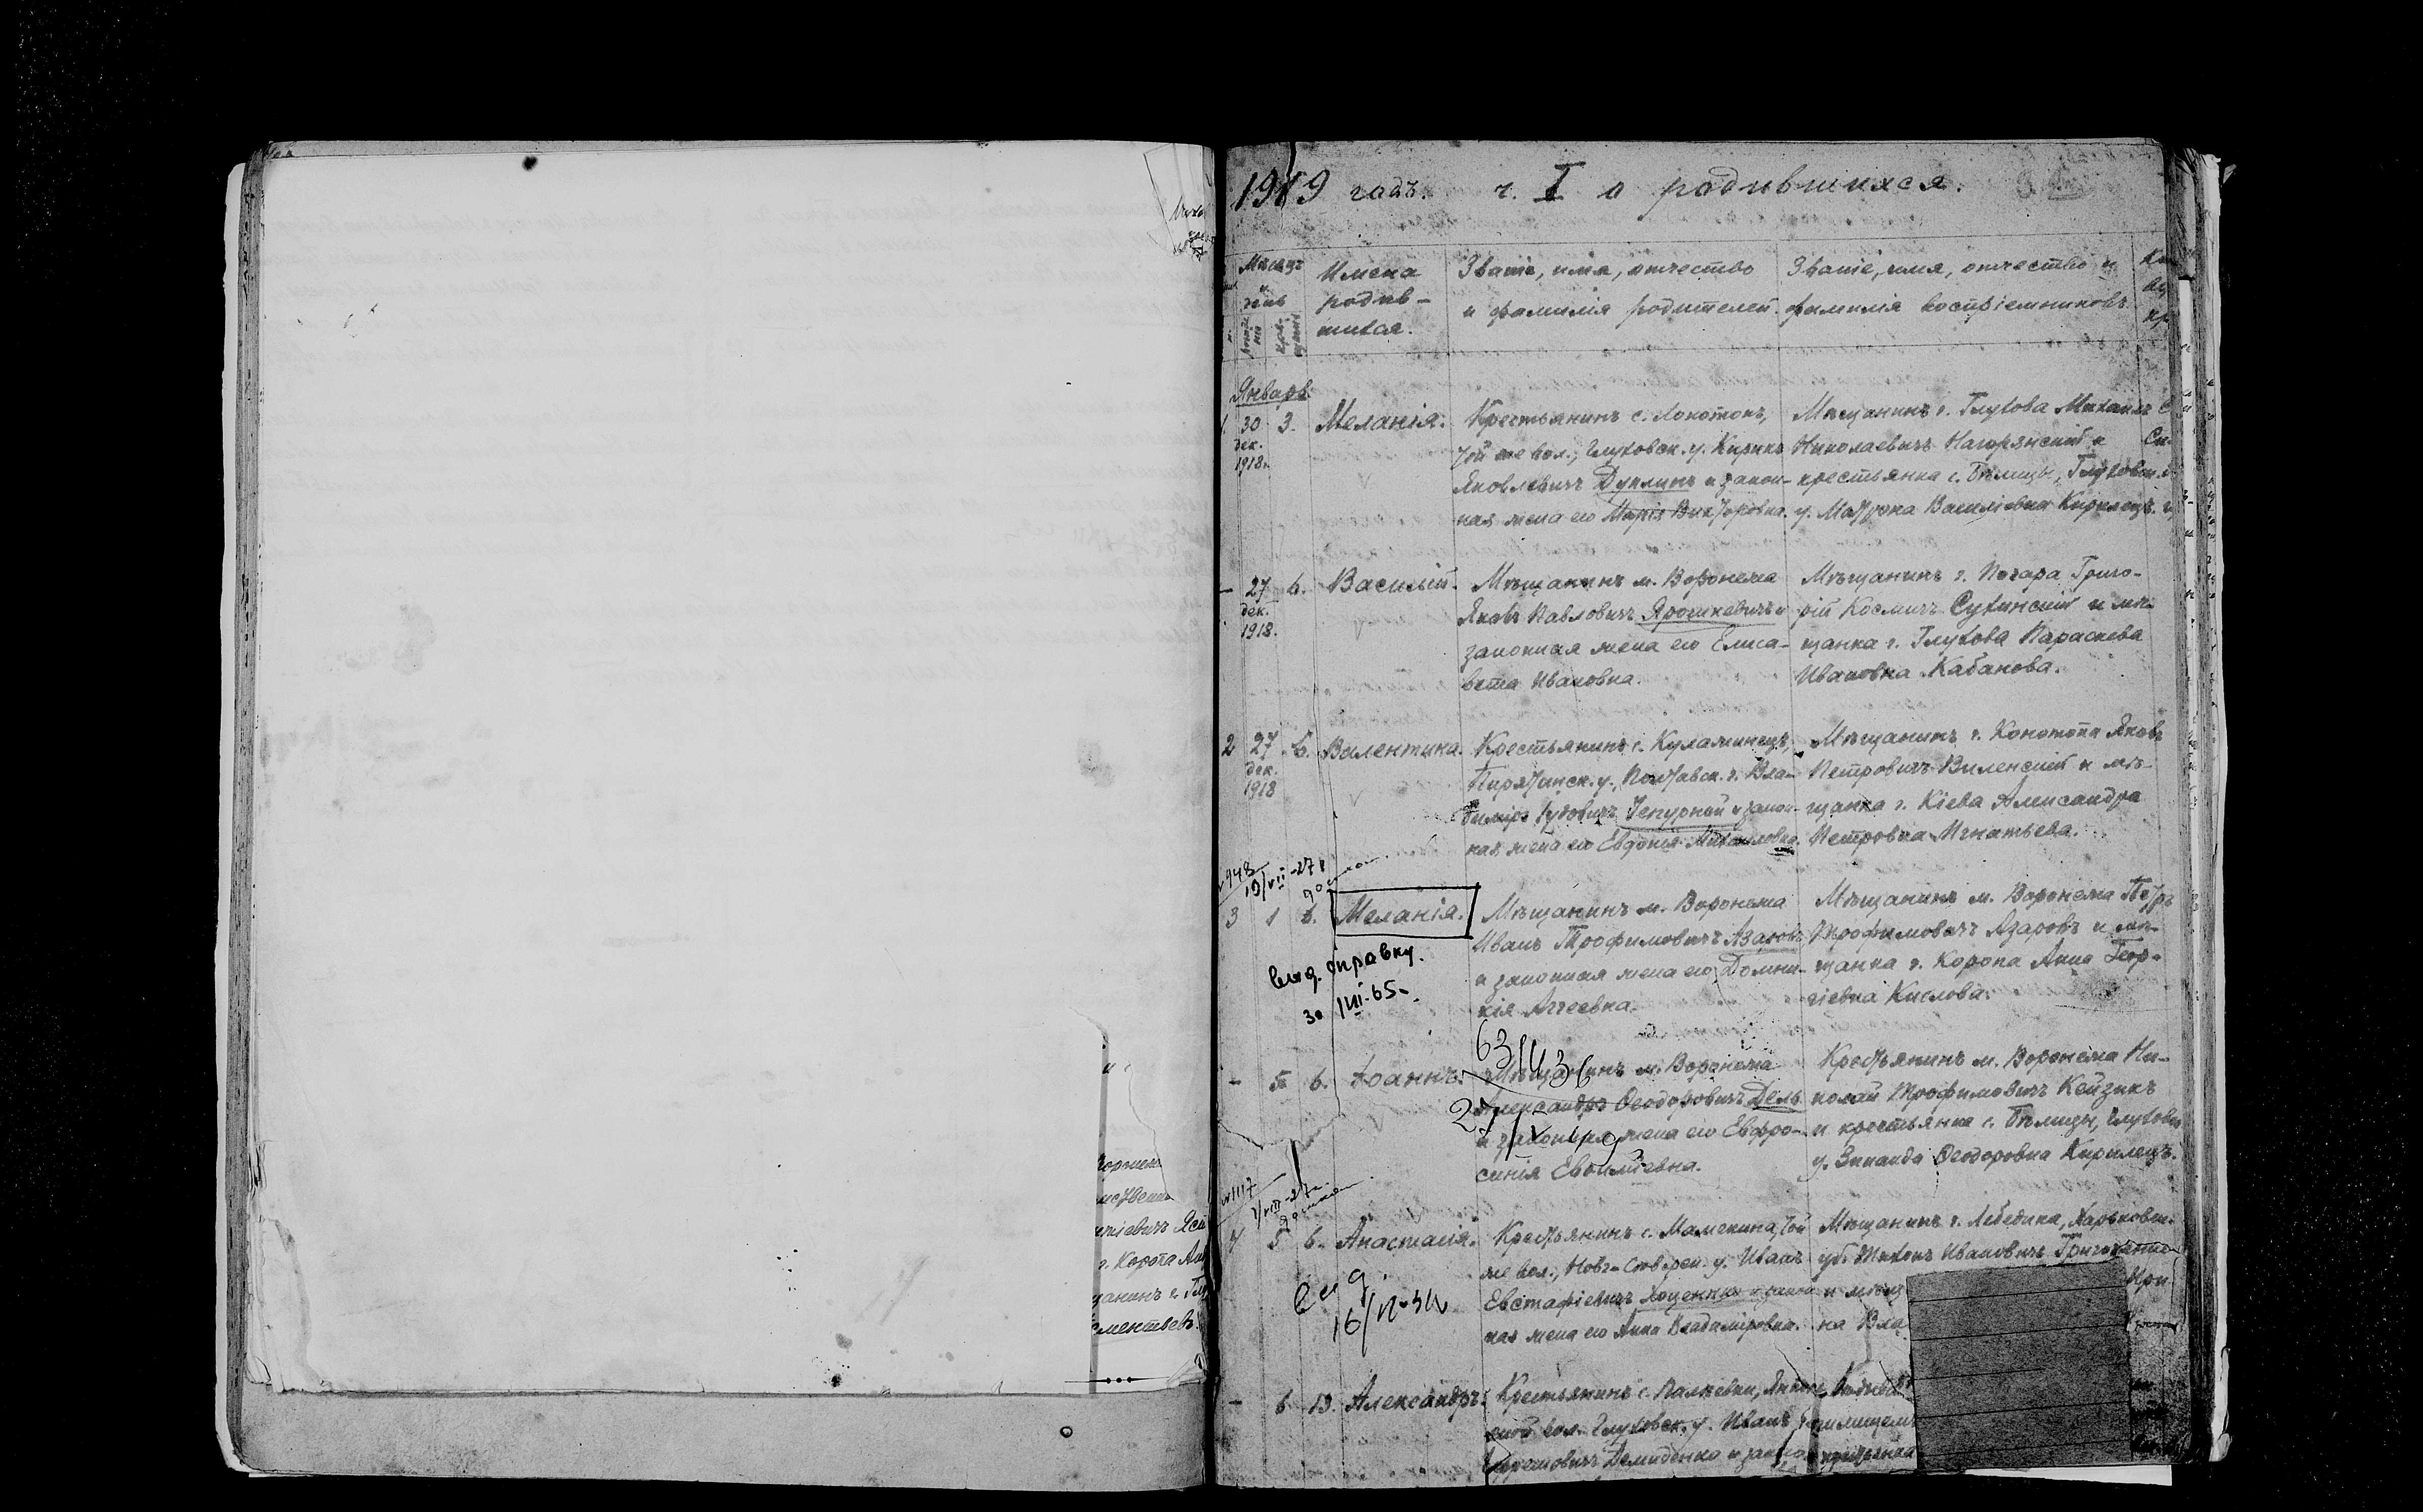 1919 годъ. ч. I о родившихся.
Мѣсяцъ и день
Имена родив-
шихся.
Званіе, имя, отчество
и фамилія родителей.
Званіе, имя, отчество и
фамилія воспріемниковъ.
Январь.
1. 30 дек. 1918. 3. Меланія.
Крестьянинъ с. Локотокъ,
той же вол., Глуховск. у. Кирикъ
Яковлевичъ Дуплинъ и закон-
ная жена его Марія Викторовна.
Мѣщанинъ г. Глухова Михаилъ
Николаевичъ Нагорянскій и
крестьянка с. Бѣлицы, Глуховск.
у. Матрона Васильевна Кирилецъ.
- 27 дек. 1918. 6. Василій.
Мѣщанинъ м. Воронежа
Яковъ Павловичъ Ярошкевичъ и
законная жена его Елиса-
вета Ивановна.
Мѣщанинъ г. Погара Григо-
рій Космичъ Сухинскій и мѣ-
щанка г. Глухова Параскева
Ивановна Кабанова.
2 27 дек. 1918 6. Валентина.
Крестьянинъ с. Кулажинецъ,
Пирятинск. у., Полтавск. г. Вла-
диміръ Чепурной и закон-
ная жена его Евдокія Михаиловна.
Мѣщанинъ г. Конотопа Яковъ
Петровичъ Виленскій и мѣ-
щанка г. Кіева Александра
Петровна Игнатьева.
№948
19/VII-27
3 1 6. Меланія.
выд. справку.
30/III-65
Мѣщанинъ м. Воронежа
Иванъ Трофимовичъ Азаровъ
и законная жена его Домни-
кія Аггеевна.
Мѣщанинъ м. Воронежа Петръ
Трофимовичъ Азаровъ и мѣ-
щанка г. Коропа Анна Геор-
гіевна Кислова.
- 5 6. Іоаннъ.
Мѣщанинъ м. Воронежа
Александръ Ѳеодоровичъ Дель
и законная жена его Евфро-
синія
Крестьянинъ м. Воронежа Ни-
колай Трофимовичъ Кейзикъ
и крестьянка с. Бѣлицы, Глуховск.
у. Зинаида Ѳеодоровна Кирилецъ.
№1117
4 5 6. Анастасія.
выд.
16/
Крестьянинъ с. Мамекина, той
же вол., Новг-Сѣверск. у. Иванъ
Евстафіевичъ Яоценко и закон-
ная жена его Анна Владиміровна.
Мѣщанинъ г. Лебедина, Харьковск.
губ. Тихонъ Ивановичъ
и мѣщ
на Вла
- 6 13. Александръ.
Крестьянинъ с. Палѣевки,
вол. Глуховск. у. Иванъ
Демиденко и закон-
крестьянка
г. Коропа Анн
щанинъ г. Глу
ментьевъ.